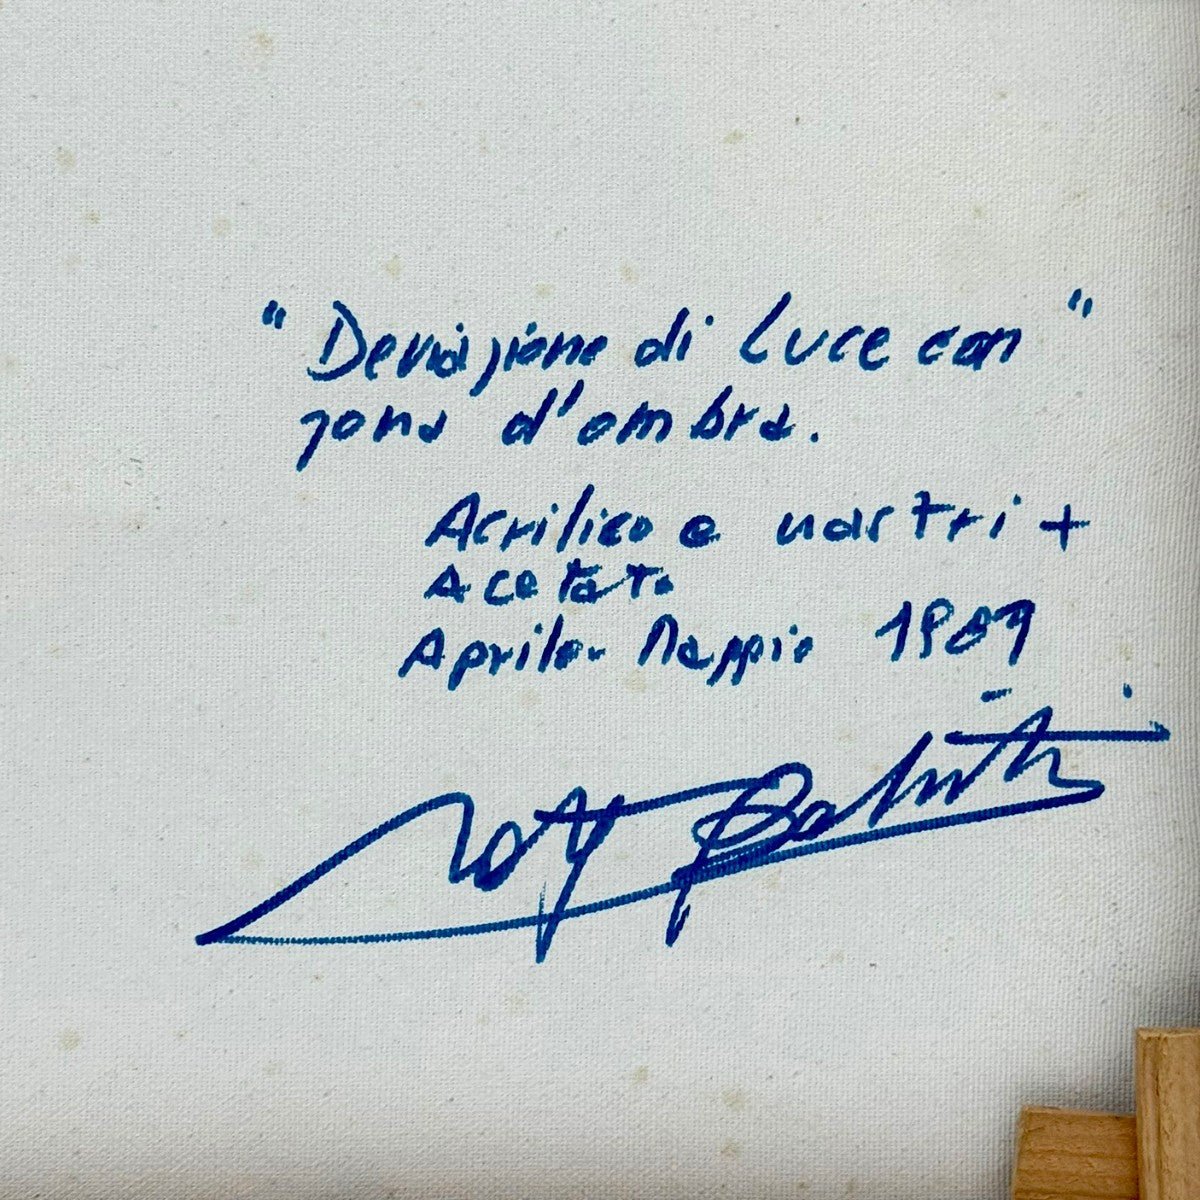 "Deviazione di Luce con"
zona d'ombra.
Acrilico e nastri +
Acetato
Aprile- Maggio 1989